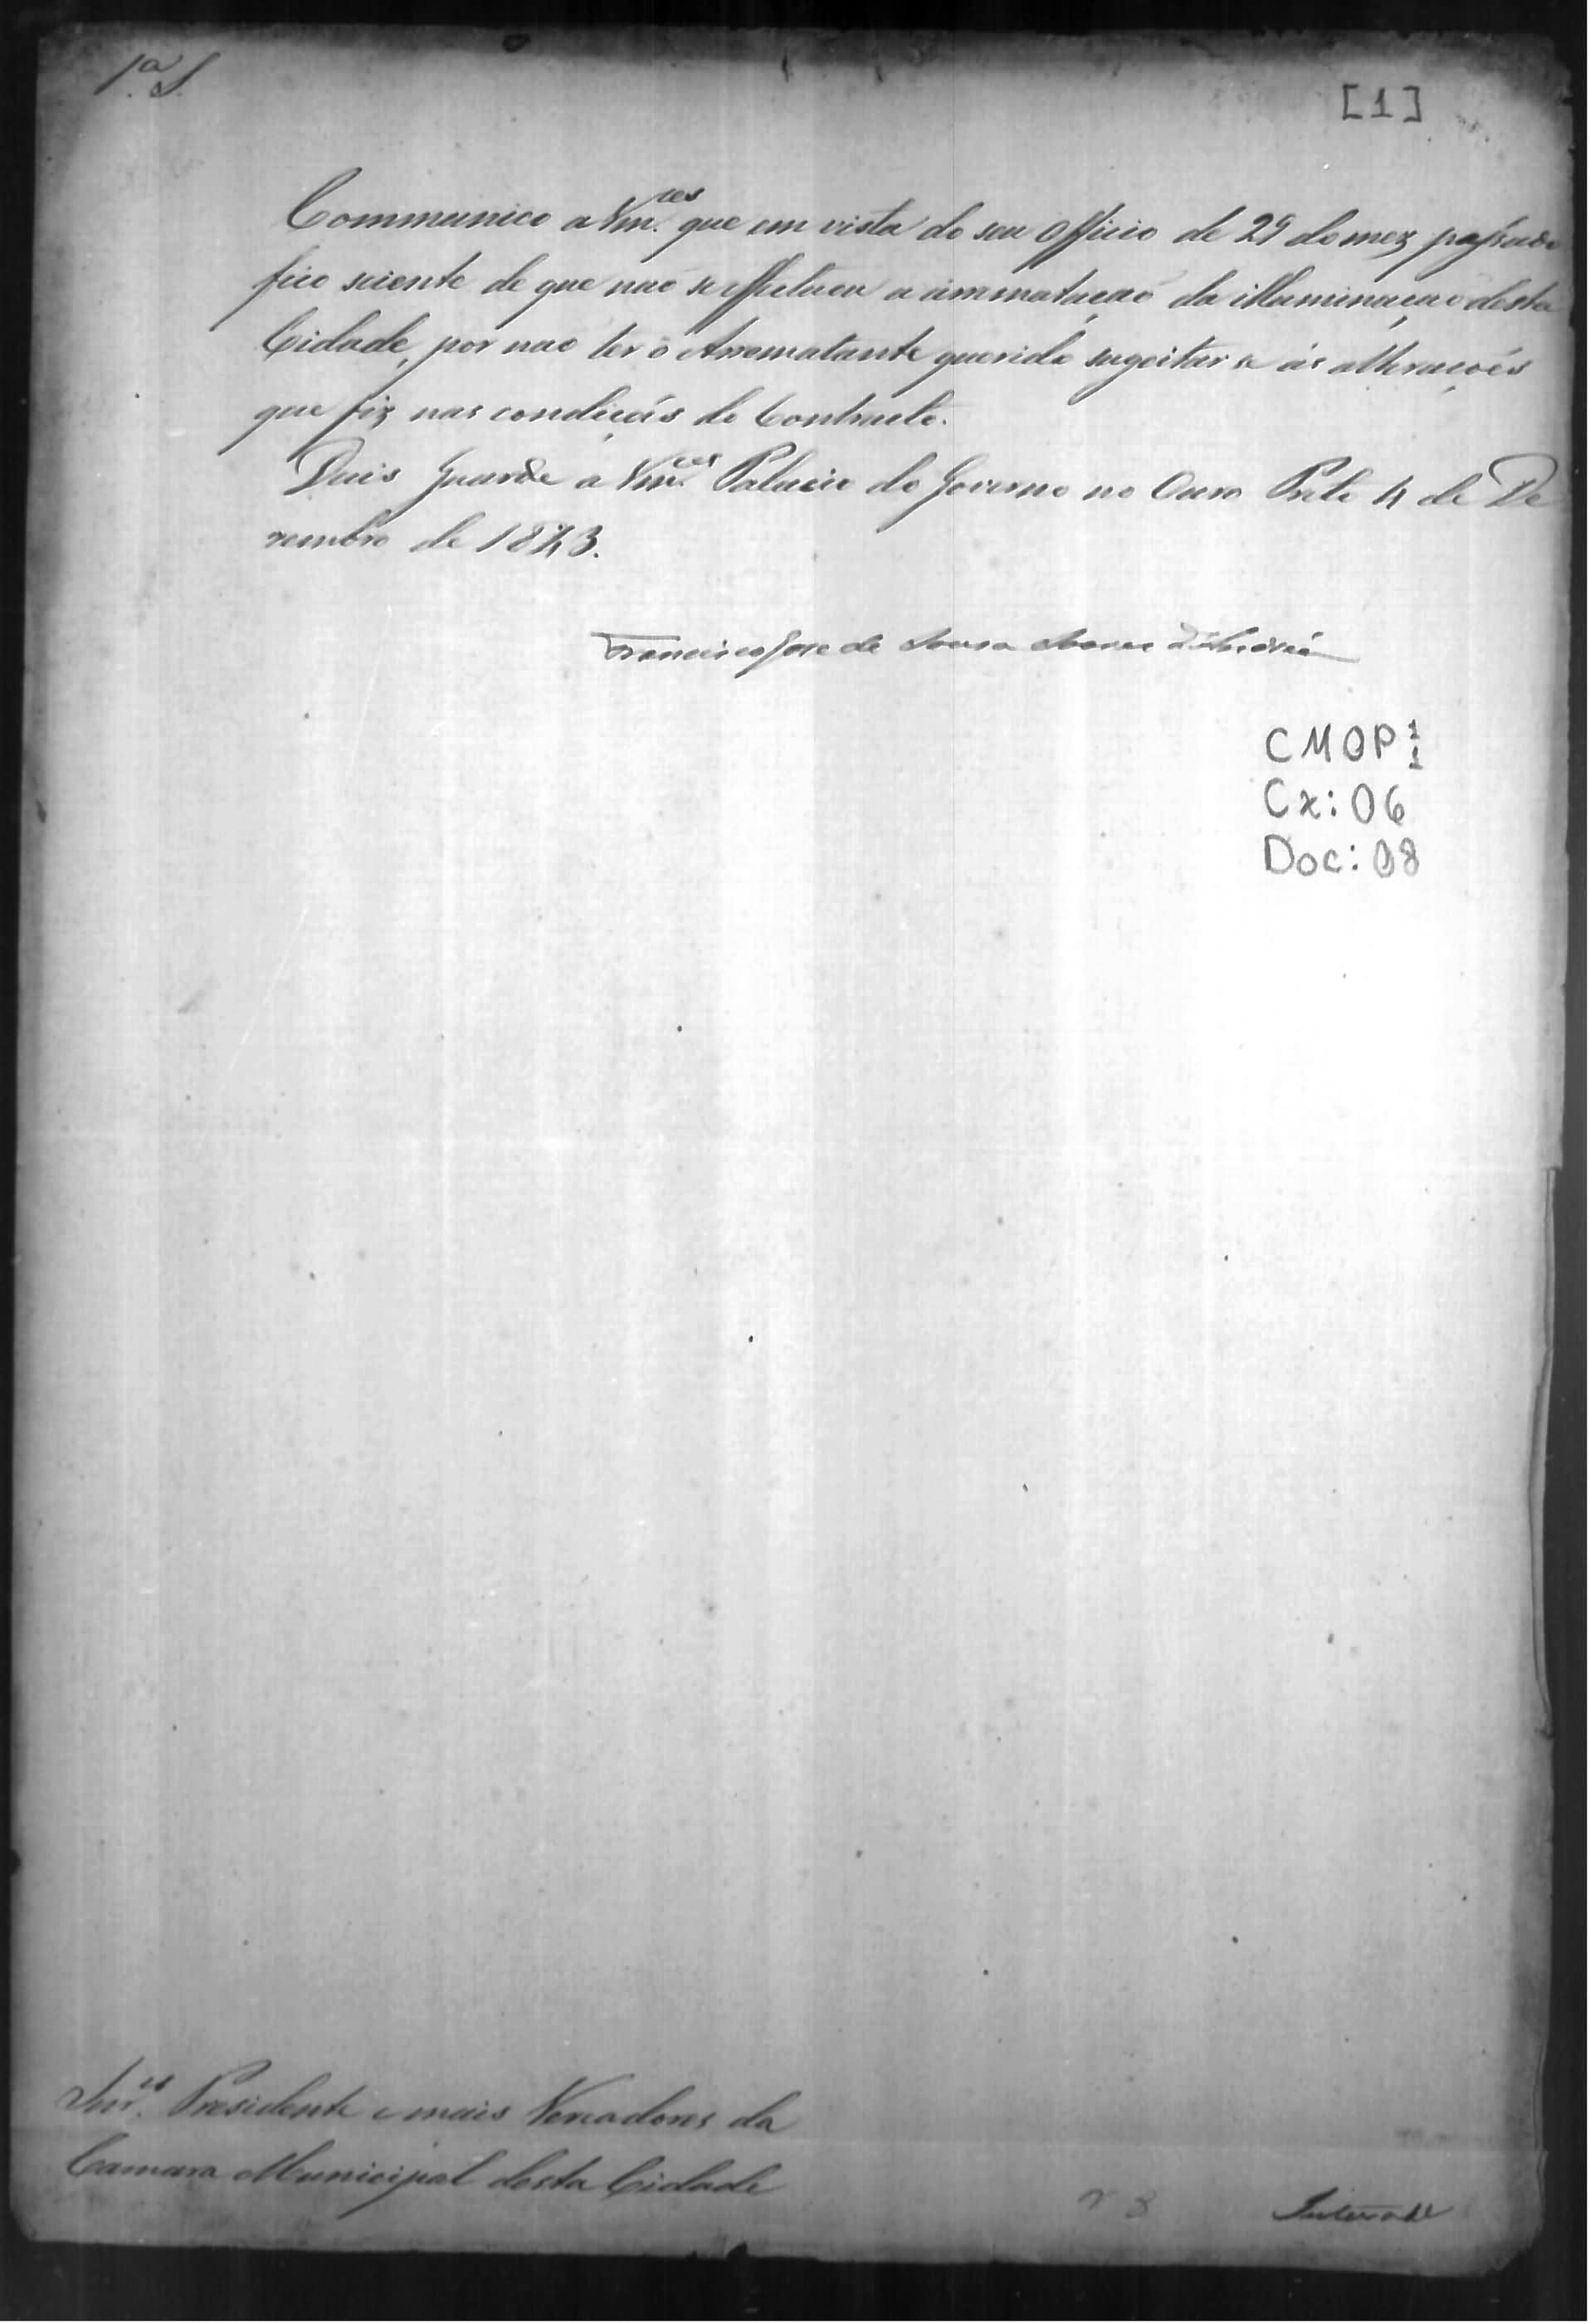 1.ª S.
[1]
Communico a Vm.ces que em vista do seu officio de 29 do mez passado
fico sciente de que naõ se effectuou a arrematação da illuminação desta
Cidade, por nao ter o Arrematante querido sugeitar se ás alterações
que fiz nas condições do Contracto.
Deus Guarde a Vm.ces Palacio do Governo no Ouro Preto 4 de De
zembro de 1843.
Francisco Jose de Sousa Soares d'Andréa
CMOP 1/1
Cx: 06
Doc: 08
Snr.es Presidente e mais Vereadores da
Camara Municipal desta Cidade